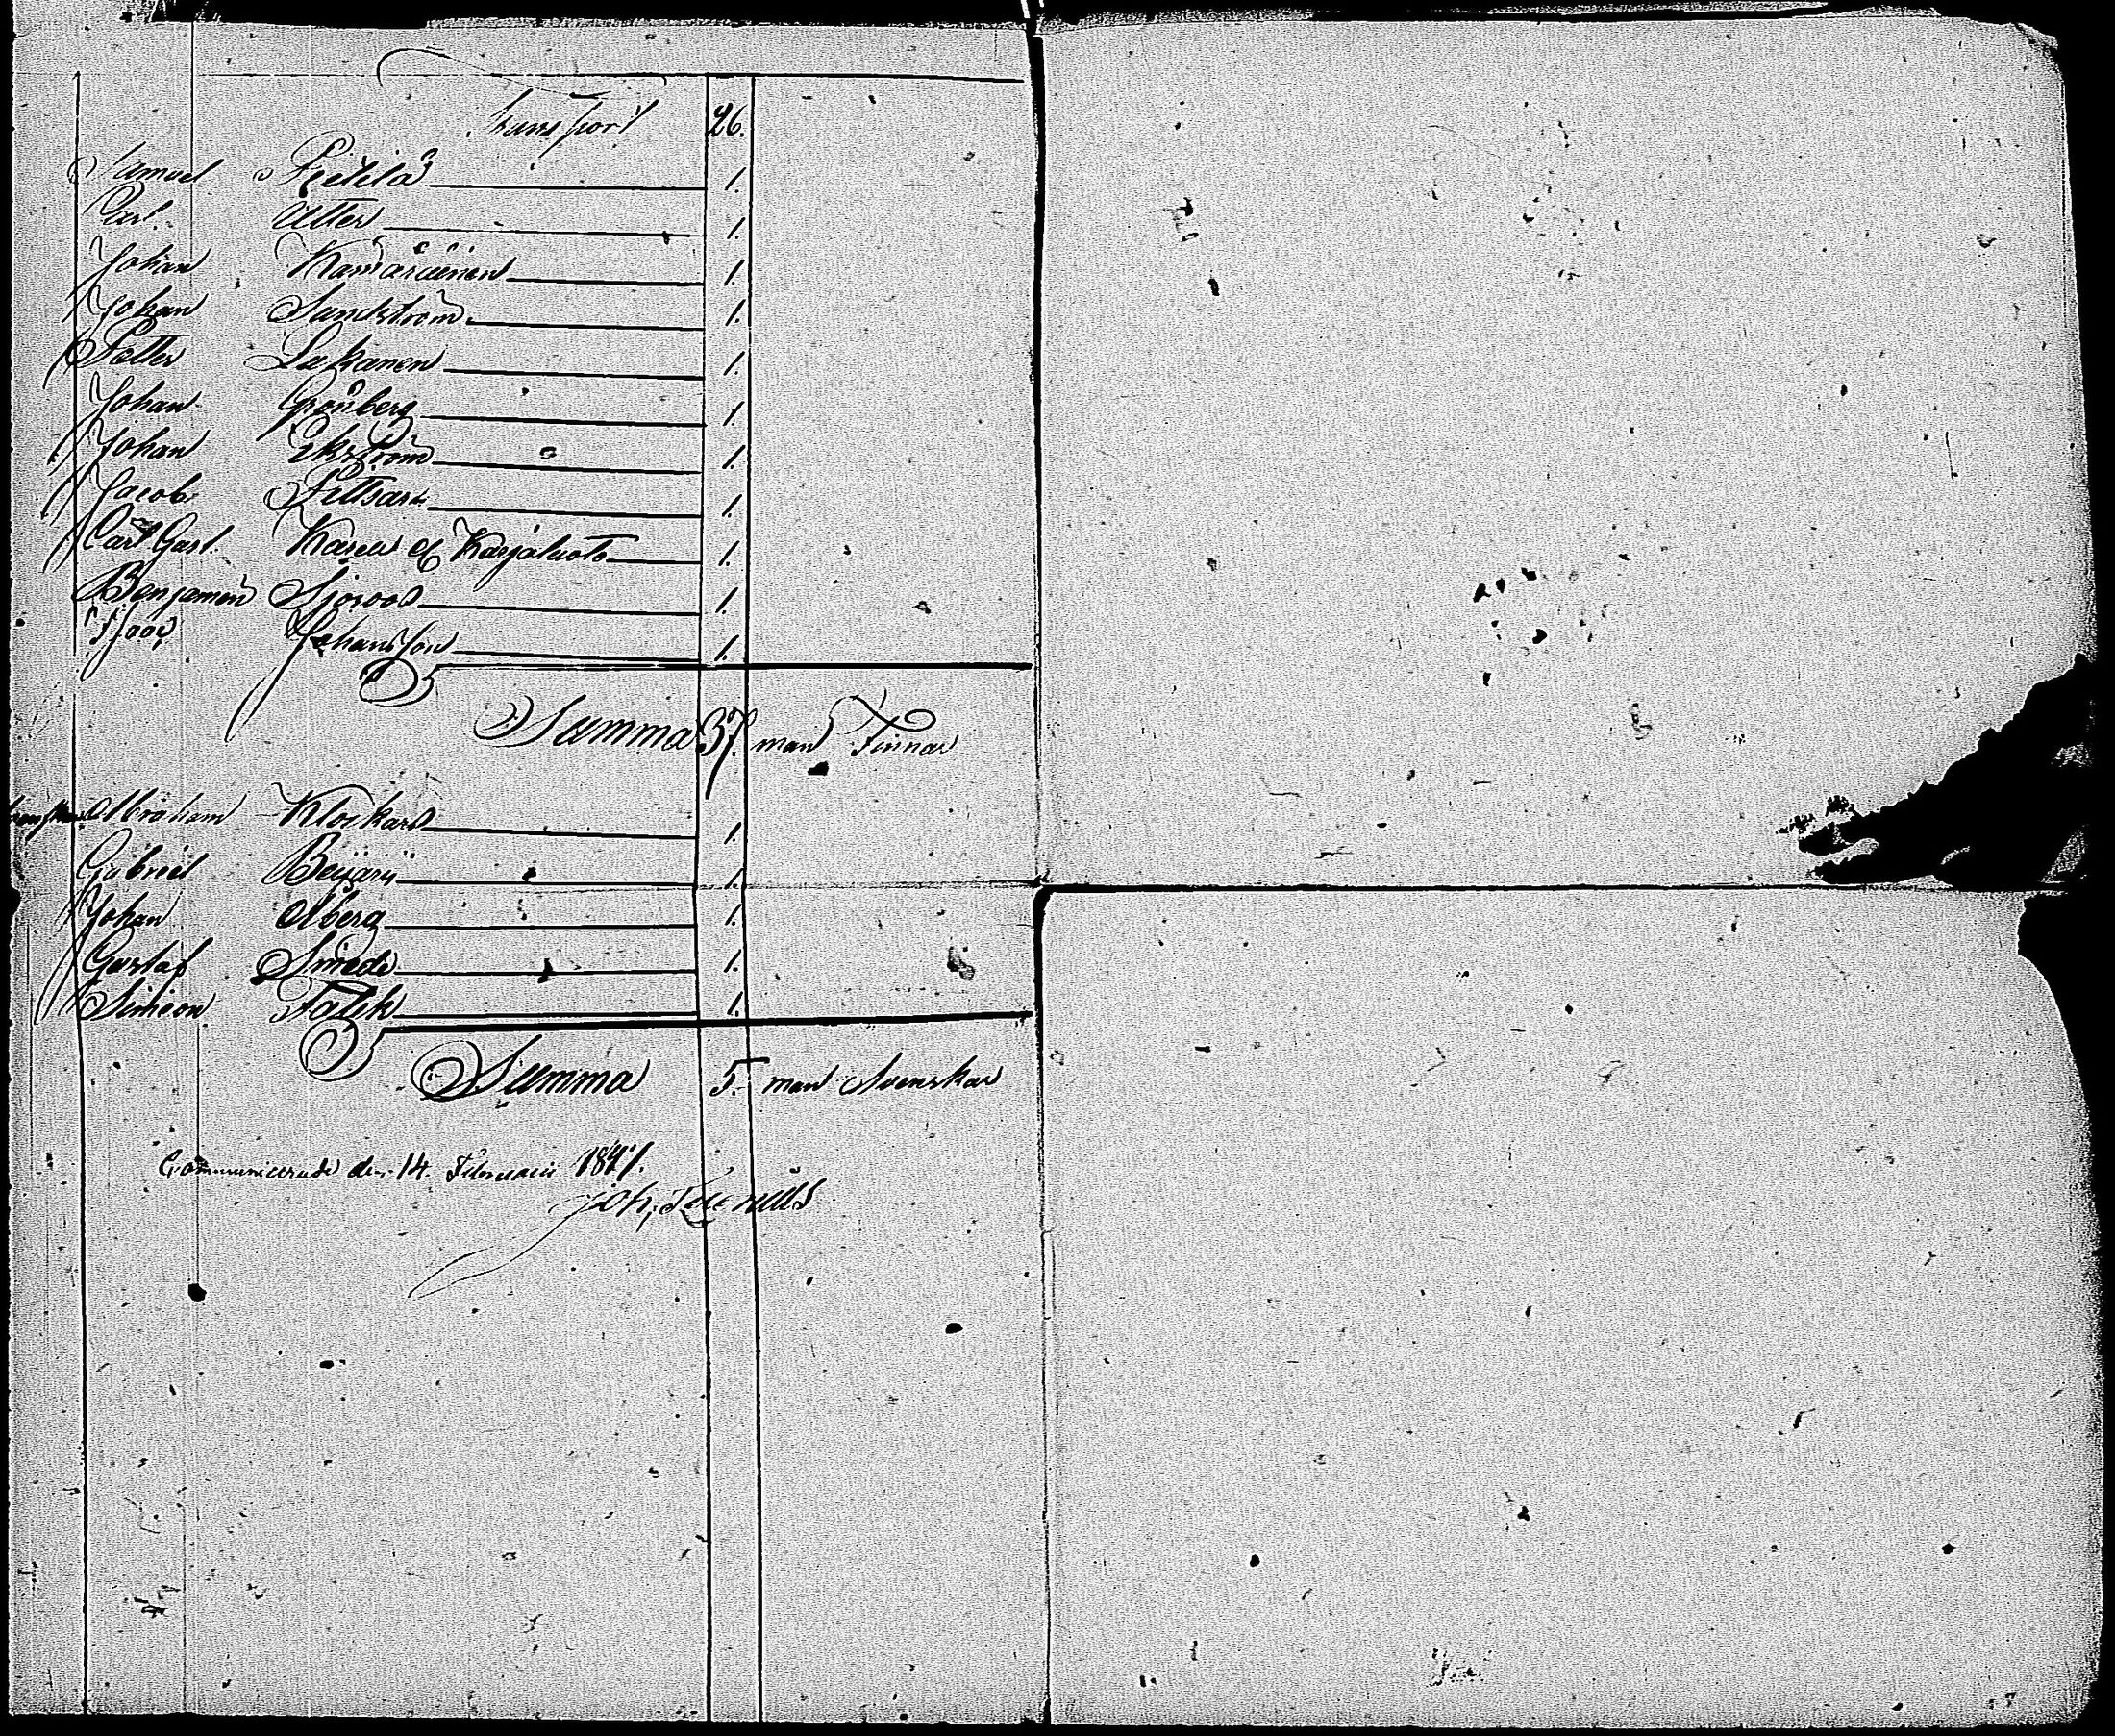 Transport 26.
Samuel Pietilä 1.
Carl Utter 1.
Johan Kamaräinen 1.
Johan Sundström 1.
Petter Lukanen 1.
Johan Grönberg 1.
Johan Ekström 1.
Jacob 1.
Carl Gust. 1.
Benjamin Sjöroos 1.
Johansson 1.
Summa 37. man Finnar
Abraham Klockars 1.
Gabriel 1.
Johan Åberg 1.
Gustaf Smeds 1.
Simeon Falck 1.
Summa 5. man Svenskar
Communicerade den 14. Februarii
Joh,